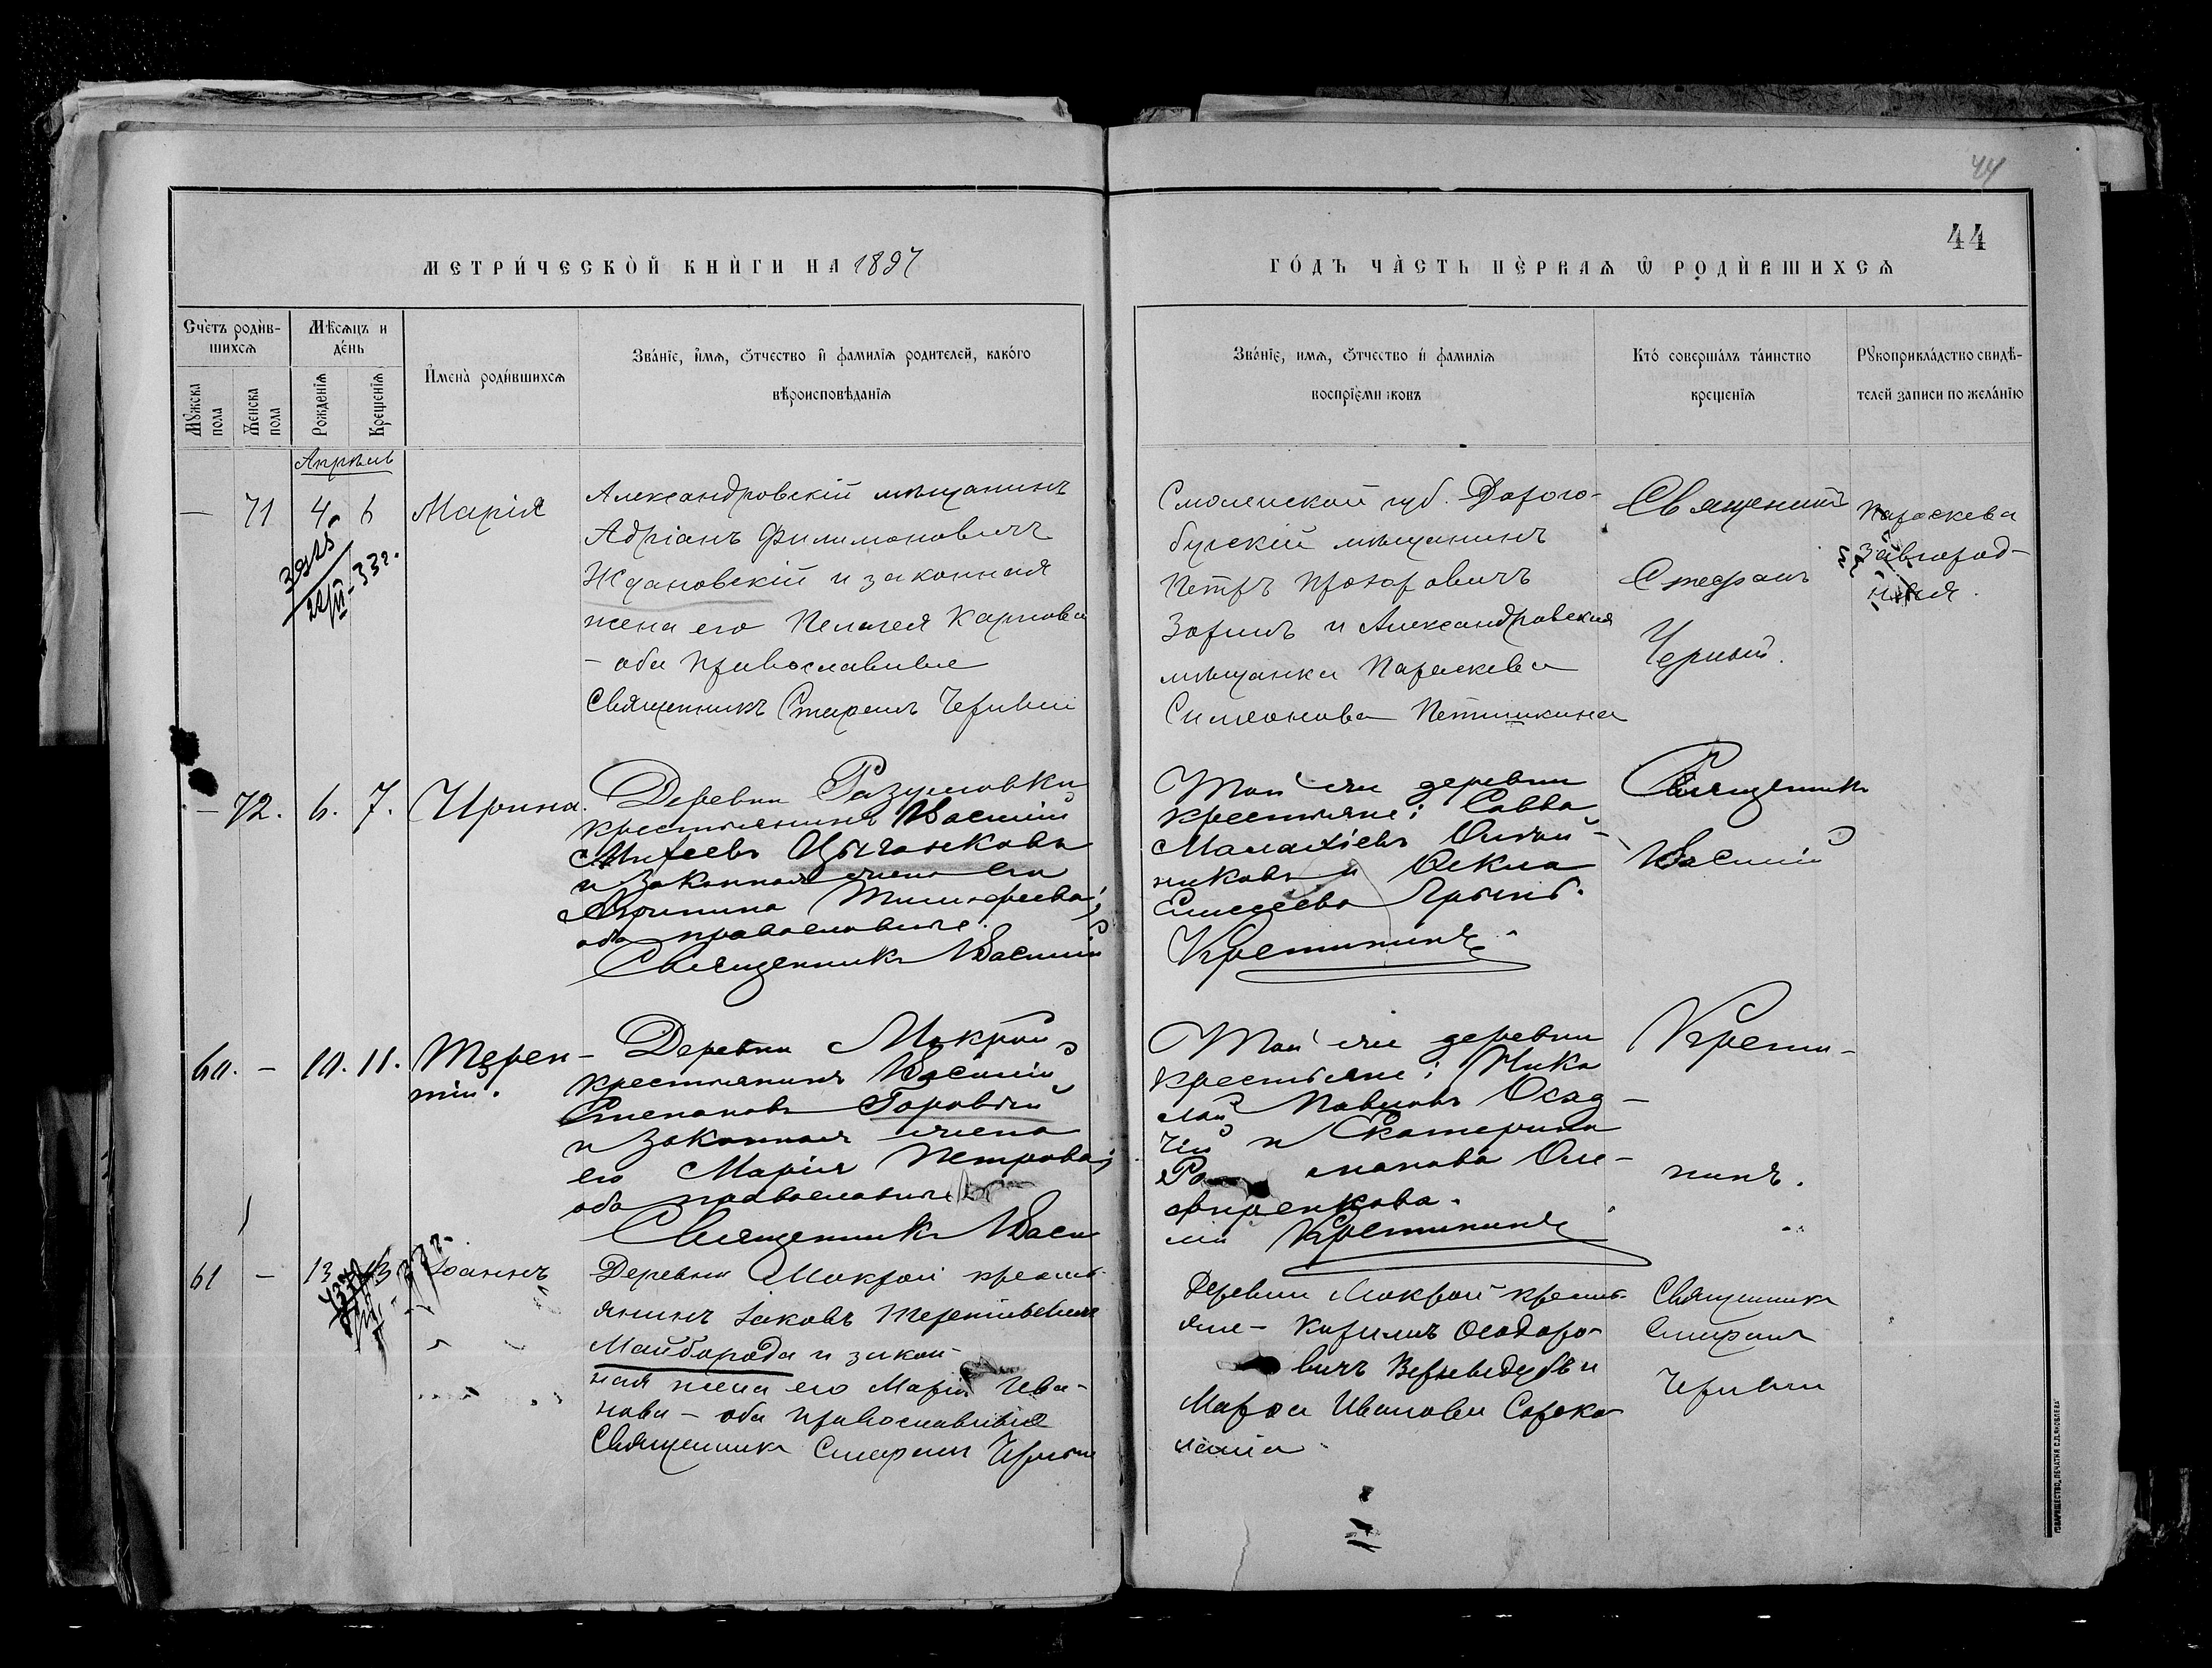 44
44
МЕТРИ́ЧЕСКОЙ КНИ́ГИ НА 1897
ГО́ДЪ ЧА́СТЬ ПЕ́РВАѦ Ѡ РОДИ́ВШИХСѦ
Сче́тъ роди́в-
шихсѧ
Мꙋжска
пола
Женска
пола
Мѣ́сѧцъ и
де́нь
Рожденїѧ
Крещенїѧ
И҆мена̀ роди́вшихсѧ
Зва́нїе, и҆мѧ, ѻтчество и҆ фамилїѧ родителей, како́го
вѣроисповѣданїѧ
Зва́нїе, имѧ, ѻтчество и҆ фамилїѧ
воспрїемниковъ
Кто́ соверша́лъ та́инство
крещенїѧ
Рꙋкоприкла́дство свидѣ́-
телей записи по жела́нїю
Апрѣль
— 71 4 6 Марія
Александровскій мѣщанинъ
Адріанъ Филимоновичъ
Ждановскій и законная
жена его Пелагея Карпова
– оба православные
Священникъ Стефанъ Черный
Смоленской губ. Дорого-
бужскій мѣщанинъ
Петръ Прохоровичъ
Зоринъ и Александровская
мѣщанка Параскева
Симеонова Петишкина
Священникъ
Стефанъ
Черный.
Параскева
Завгород-
няя.
33г.
— 72. 6. 7. Ирина.
Деревни Разумовки
крестьянинъ Василій
Михеевъ Цыганковъ
и законная жена его
Агрипина Тимофеева;
оба православные.
Священникъ Василій
Той же деревни
крестьяне: Савва
Малахіевъ
и Ѳекла
Елисеева
Крестининъ.
Священникъ
Василій
60. — 10. 11. Терен-
тій.
Деревни Мокрой
крестьянинъ Василій
Степановъ Горовый
и законная жена
его Марія Петрова;
оба православные
Священникъ Васи
Той же деревни
крестьяне: Нико
лай Павловъ Осад-
чій и Екатерина
Ро мапова Оле-
фиренкова.
лій Крестининъ
Крести-
нинъ.
61 — 13 13 Іоаннъ
Деревни Мокрой кресть-
янинъ Іаковъ Терентіевичъ
Майборода и закон-
ная жена его Марія Ива-
нова – оба православные
Священникъ Стефанъ Черный
Деревни Мокрой кресть-
яне – Кириллъ Ѳеодоро-
вичъ Вернывидубъ и
Марѳа Иванова Сороко-
Священникъ
Стефанъ
Черный
ТОВАРИЩЕСТВО „ПЕЧАТНЯ С.П.ЯКОВЛЕВА“